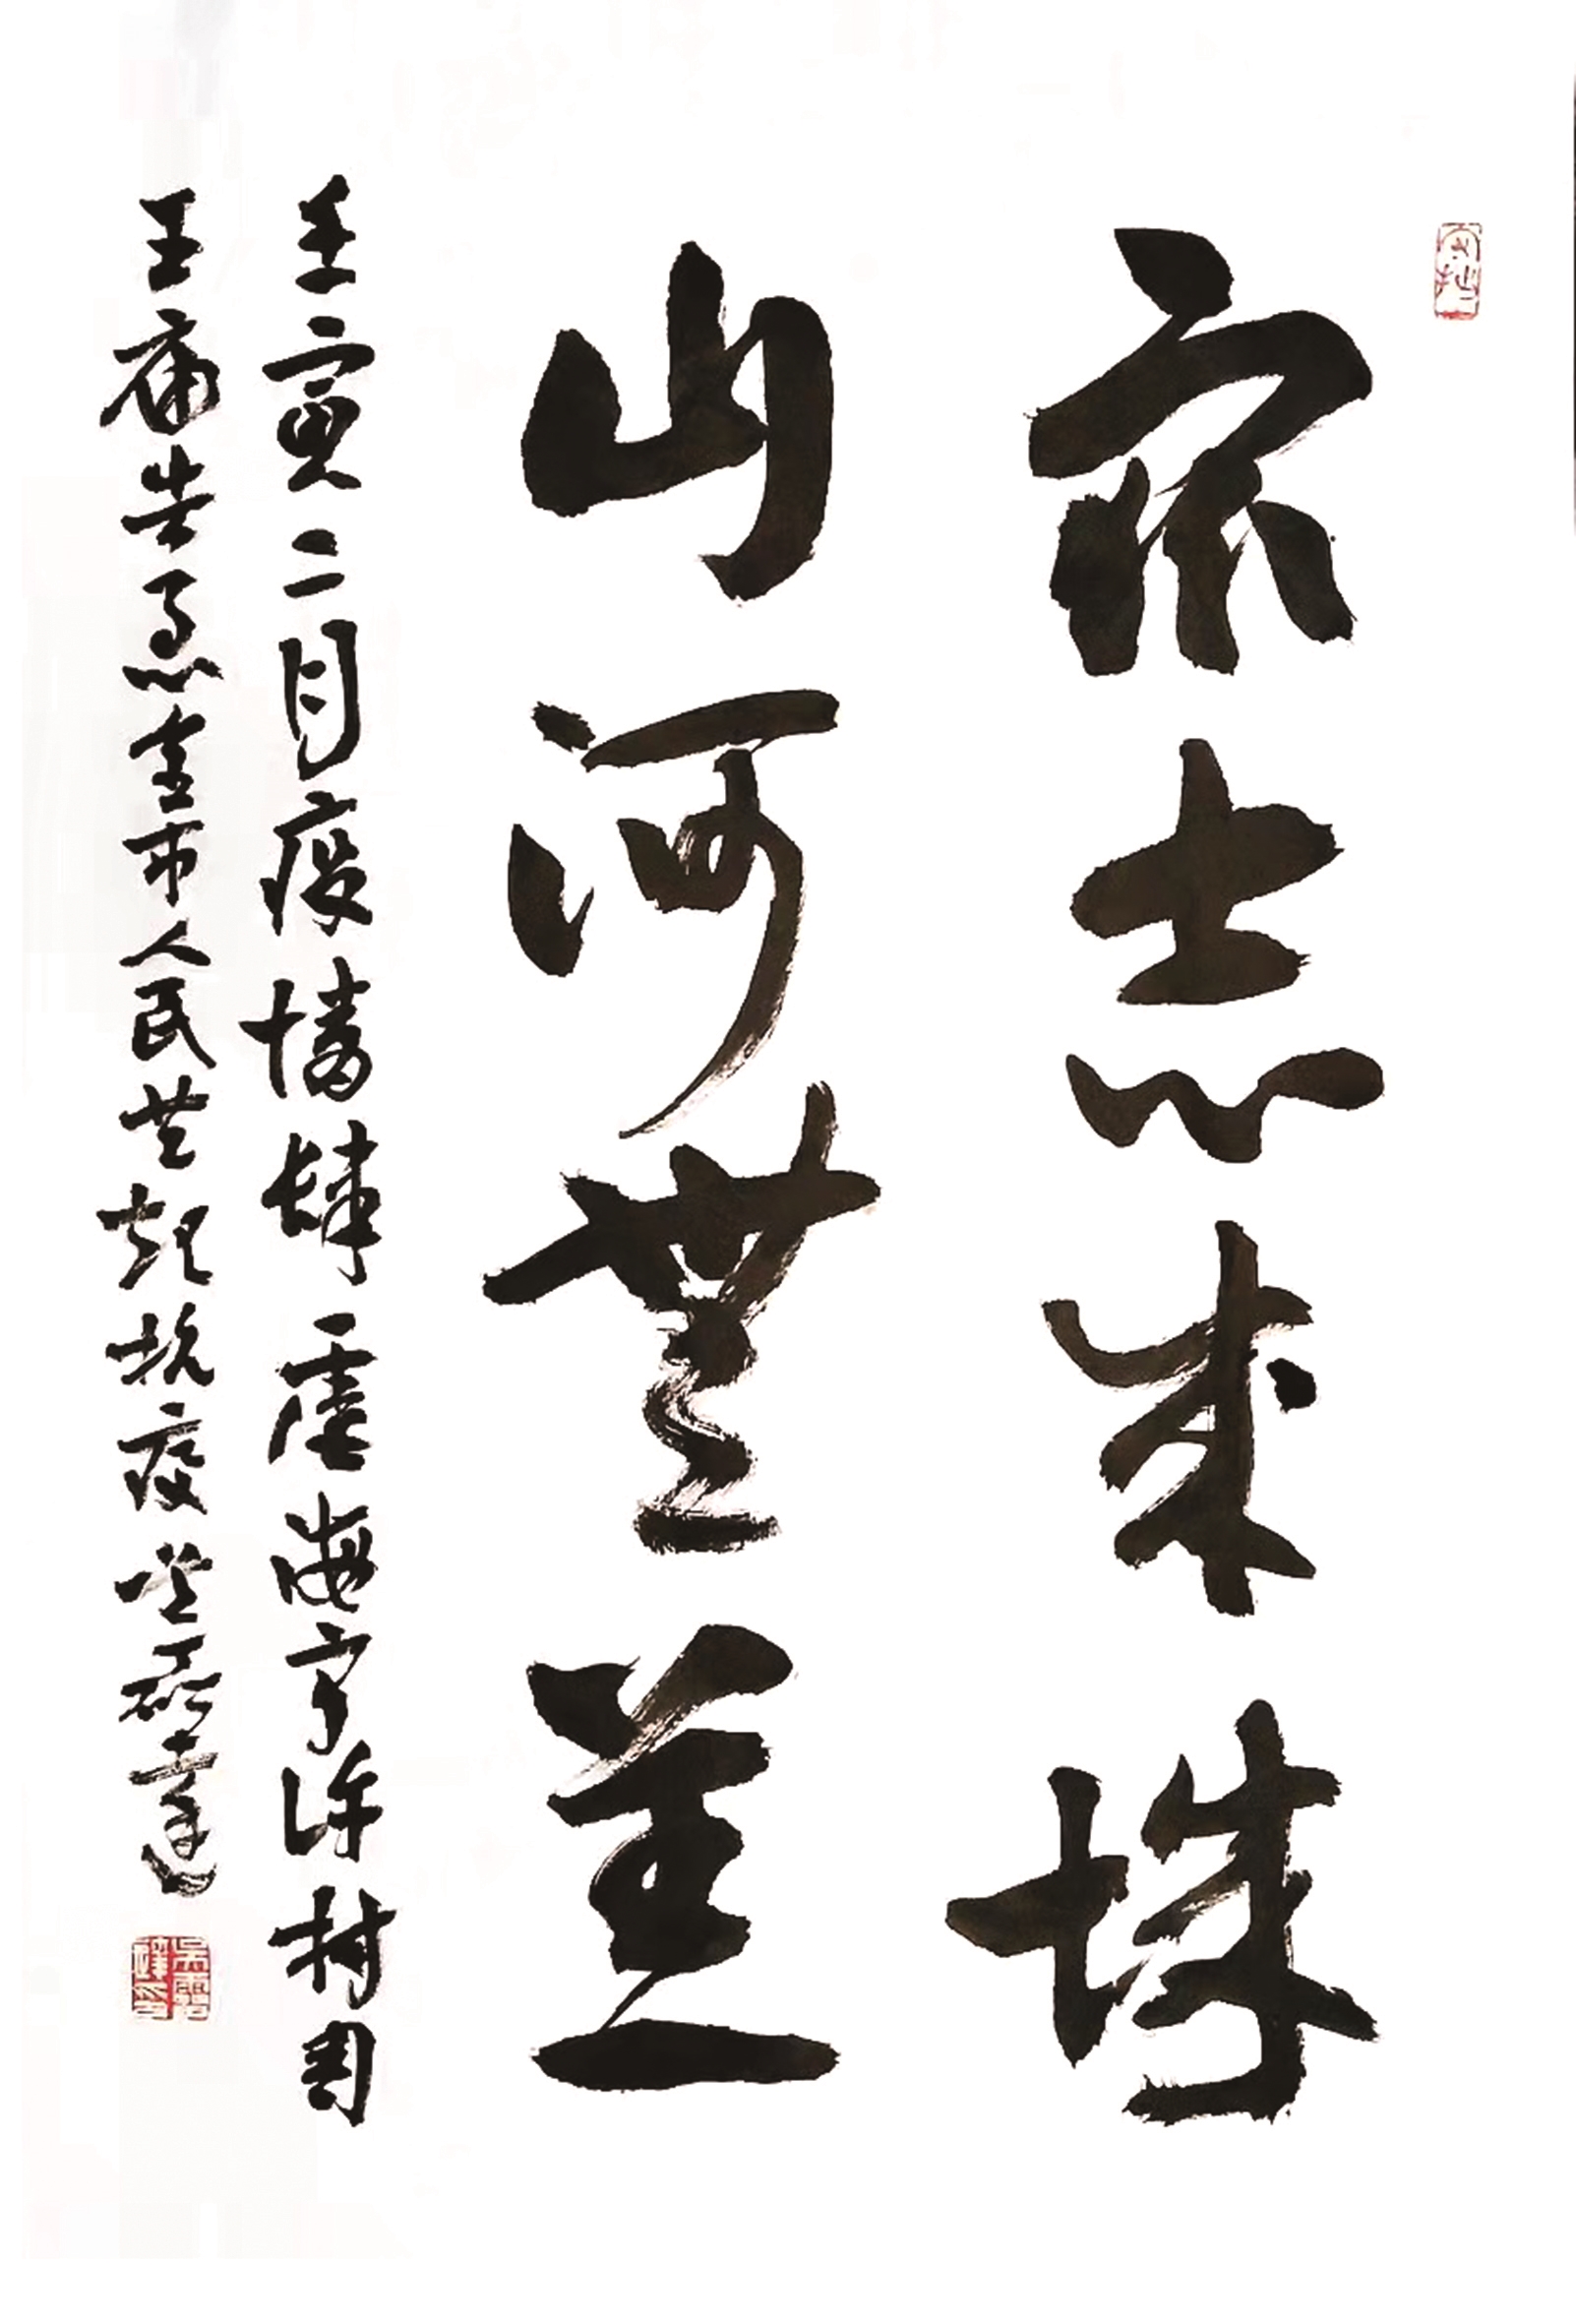 眾志成城
山河無恙
壬寅二月疫情肆虐海宁许村周
王庙告急全市人民共起抗疫